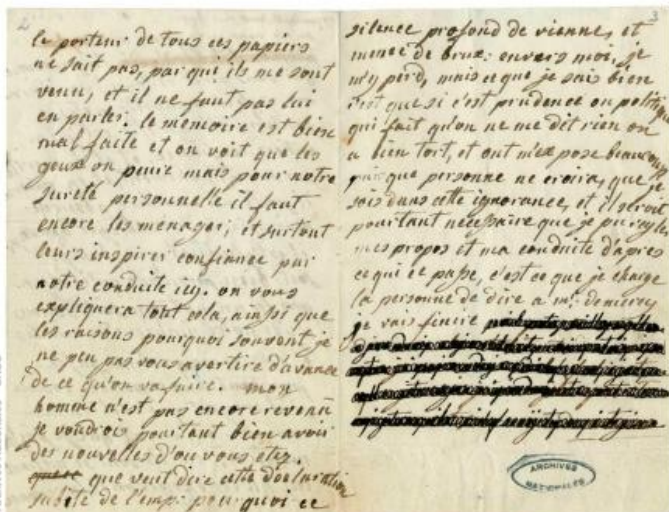 2
le porteur de tous ces papiers
ne sait pas, par qui ils me sont
venu, et il ne faut pas lui
en parler. le memoire est bien
mal faite et on voit que les
geux on peure mais pour notre
sureté personnelle il faut
encore les menager, et surtout
leurs inspirer confiance par
notre conduite icy. on vous
expliquera tout cela, ainssi que
les raisons pourquoi souvent je
ne peu pas vous avertire d'avance
de ce qu'on va faire. mon
homme n'est pas encore revenu
je voudrois pourtant bien avoir
des nouvelles d'ou vous etez.
que veut dire cette déclaration
subite de l'emp: pourquoi ce
3
silence profond de vienne, et
meme de brux: envers moi, je
m'y perd, mais ce que je sais bien
c'est que si c'est prudence ou politique
qui fait qu'on ne me dit rien on
a bien tort, et ont m'expose beaucoup
parque personne ne croira, que je
sois dans cette ignorance, et il seroit
pourtant necessaire que je puregler
mes propos et ma conduite d'apres
ce qui ce passe, c'est ce que je charge
la personne de dire a mr. de mercy
je vais finire
ARCHIVES
NATIONALES